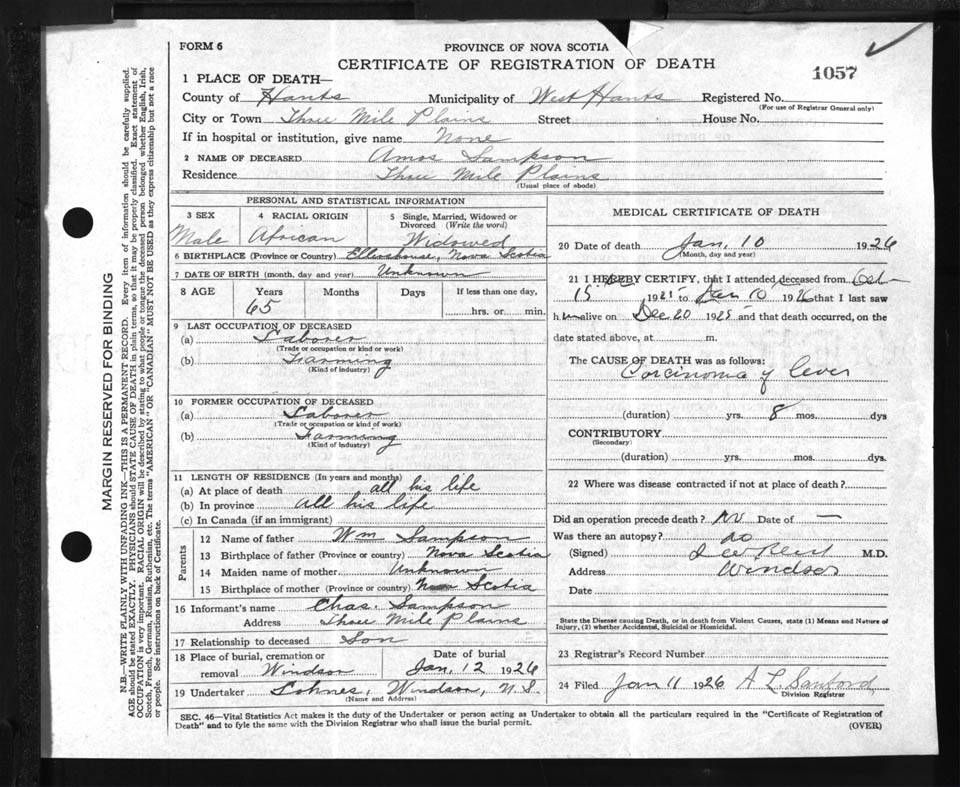 FORM 6
PROVINCE OF NOVA SCOTIA
CERTIFICATE OF REGISTRATION OF DEATH
1057
1 PLACE OF DEATH—
County of Hants Municipality of West Hants Registered No.
(For use of Registrar General only)
City or Town Three Mile Plains Street House No.
If in hospital or institution, give name None
2 NAME OF DECEASED Amos Sampson
Residence Three Mile Plains
(Usual place of abode)
PERSONAL AND STATISTICAL INFORMATION
3 SEX 4 RACIAL ORIGIN 5 Single, Married, Widowed or
Divorced (Write the word)
Male African Widowed
6 BIRTHPLACE (Province or Country) Ellershouse, Nova Scotia
7 DATE OF BIRTH (month, day and year) Unknown
8 AGE Years Months Days If less than one day,
65 hrs. or min.
9 LAST OCCUPATION OF DECEASED
(a) Laborer
(Trade or occupation or kind or work)
(b) Farming
(Kind of industry)
10 FORMER OCCUPATION OF DECEASED
(a) Laborer
(Trade or occupation or kind of work)
(b) Farming
(Kind of industry)
11 LENGTH OF RESIDENCE (In years and months)
(a) At place of death all his life
(b) In province All his life
(c) In Canada (if an immigrant)
Parents
12 Name of father Wm Sampson
13 Birthplace of father (Province or country) Nova Scotia
14 Maiden name of mother Unknown
15 Birthplace of mother (Province or country) Nova Scotia
16 Informant's name Chas. Sampson
Address Three Mile Plains
17 Relationship to deceased Son
18 Place of burial, cremation or Date of burial
removal Windsor Jan. 12 1926
19 Undertaker Lohnes, Windsor, N.S.
(Name and Address)
MEDICAL CERTIFICATE OF DEATH
20 Date of death Jan, 10 1926
(Month, day and year)
21 I HEREBY CERTIFY, that I attended deceased from Oct
15 1925 to Jan 10 1926 that I last saw
h im alive on Dec 20 1925 and that death occurred, on the
date stated above, at m.
The CAUSE OF DEATH was as follows:
Carcinoma of liver
(duration) yrs. 8 mos. dys
CONTRIBUTORY
(Secondary)
(duration) yrs. mos. dys.
22 Where was disease contracted if not at place of death?
Did an operation precede death? No Date of —
Was there an autopsy? no
(Signed) Reid M.D.
Address Windsor
Date
State the Disease causing Death, or in death from Violent Causes, state (1) Means and Nature of
Injury, (2) whether Accidental, Suicidal or Homicidal.
23 Registrar's Record Number
24 Filed Jan 11 1926 A L Sanford
Division Registrar
SEC. 46—Vital Statistics Act makes it the duty of the Undertaker or person acting as Undertaker to obtain all the particulars required in the "Certificate of Registration of
Death" and to fyle the same with the Division Registrar who shall issue the burial permit.
(OVER)
MARGIN RESERVED FOR BINDING
N.B.—WRITE PLAINLY WITH UNFADING INK—THIS IS A PERMANENT RECORD. Every item of information should be carefully supplied.
AGE should be stated EXACTLY. PHYSICIANS should STATE CAUSE OF DEATH in plain terms, so that it may be properly classified. Exact statement of
OCCUPATION is very important. RACIAL ORIGIN will be described by stating to what people or tongue the deceased person belonged whether English, Irish,
Scotch, French, German, Russian, Ruthenian, etc. The terms "AMERICAN" OR "CANADIAN" MUST NOT BE USED as they express citizenship but not a race
or people. See instructions on back of Certificate.